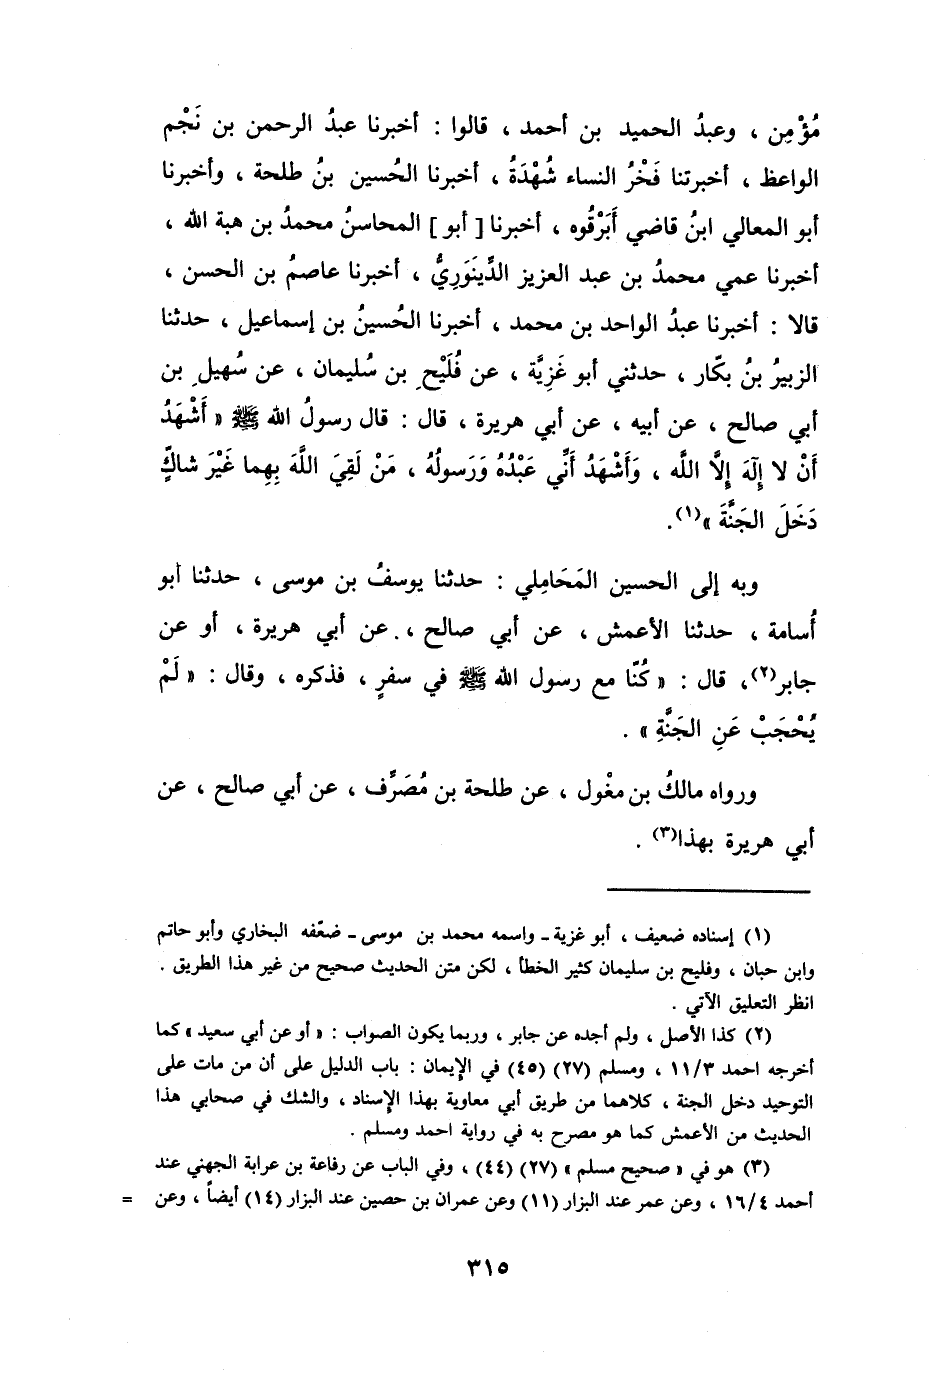 مُؤْمِن ، وعبدُ الحميد بن أحمد ، قالوا : أخبرنا عبدُ الرحمن بن نَجْم
الواعظ ، أخبرتنا فَخْرُ النساء شُهْدَةُ ، أخبرنا الحُسين بنُ طلحة ، وأخبرنا
أبو المعالي ابنُ قاضي أَبَرْقُوه ، أخبرنا [ أبو ] المحاسنُ محمدُ بن هبة الله ،
أخبرنا عمي محمدُ بن عبد العزيز الدِّينَوَرِيُّ ، أخبرنا عاصمُ بن الحسن ،
قالا : أخبرنا عبدُ الواحد بن محمد ، أخبرنا الحُسينُ بن إسماعيل ، حدثنا
الزبيرُ بنُ بكّار ، حدثني أبو غَزِيَّة ، عن فُلَيْحِ بن سُليمان ، عن سُهيلِ بن
أبي صالح ، عن أبيه ، عن أبي هريرة ، قال : قال رسولُ الله ﷺ « أَشْهَدُ
أَنْ لا إِلَهَ إِلَّا اللَّه ، وَأَشْهَدُ أَنِّي عَبْدُهُ وَرَسولُهُ ، مَنْ لَقِيَ اللَّهَ بِهِما غَيْرَ شاكٍّ
دَخَلَ الجَنَّةَ »(١).
وبه إلى الحسين المَحَامِلي : حدثنا يوسفُ بن موسى ، حدثنا أبو
أُسامة ، حدثنا الأعمش ، عن أبي صالح ، عن أبي هريرة ، أو عن
جابر(٢)، قال : « كُنّا مع رسول الله ﷺ في سفرٍ ، فذكره ، وقال : « لَمْ
يُحْجَبْ عَنِ الجَنَّةِ » .
ورواه مالكُ بن مغْول ، عن طلحة بن مُصَرِّف ، عن أبي صالح ، عن
أبي هريرة بهذا(٣) .
(١) إسناده ضعيف ، أبو غزية ـ واسمه محمد بن موسى ـ ضعّفه البخاري وأبو حاتم
وابن حبان ، وفليح بن سليمان كثير الخطأ ، لكن متن الحديث صحيح من غير هذا الطريق .
انظر التعليق الآتي .
(٢) كذا الأصل ، ولم أجده عن جابر ، وربما يكون الصواب : « أو عن أبي سعيد » كما
أخرجه احمد ١١/٣ ، ومسلم (٢٧) (٤٥) في الإيمان : باب الدليل على أن من مات على
التوحيد دخل الجنة ، كلاهما من طريق أبي معاوية بهذا الإسناد ، والشك في صحابي هذا
الحديث من الأعمش كما هو مصرح به في رواية احمد ومسلم .
(٣) هو في « صحيح مسلم » (٢٧) (٤٤) ، وفي الباب عن رفاعة بن عرابة الجهني عند
أحمد ١٦/٤ ، وعن عمر عند البزار (١١) وعن عمران بن حصين عند البزار (١٤) أيضاً ، وعن =
٣١٥